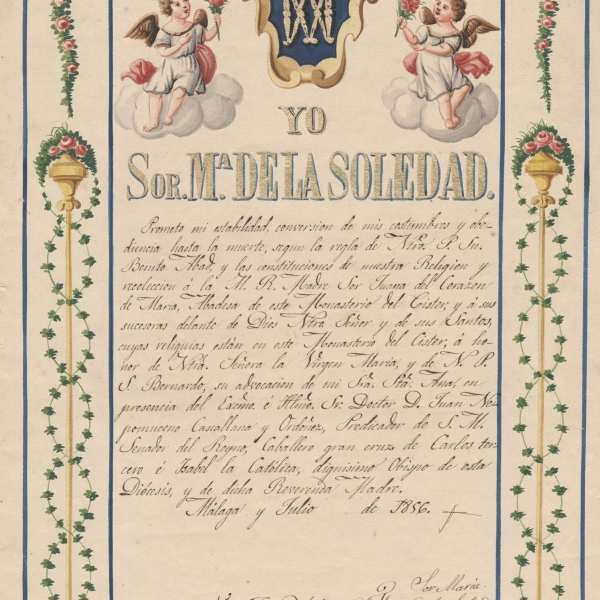 YO
SOR. Mª DE LA SOLEDAD.
Prometo mi estabilidad, conversion de mis costumbres y obe-
diencia hasta la muerte, segun la regla de Ntro. P. Sn.
Benito Abad, y las constituciones de nuestra Religion y
recoleccion á la M. R. Madre Sor Juana del Corazon
de Maria, Abadesa de este Monasterio del Cister, y á sus
sucesoras delante de Dios Ntro. Señor y de sus Santos,
cuyas reliquias están en este Monasterio del Cister, á ho-
nor de Ntra. Señora la Virgen Maria, y de N. P.
S. Bernardo, su advocacion de mi Sra. Sta. Ana, en
presencia del Excmo. é Illmo. Sr. Doctor D. Juan Ne-
pomuceno Cascallana y Ordóñez, Predicador de S. M.
Senador del Reyno, Caballero gran cruz de Carlos ter-
cero é Isabel la Católica, dignisimo Obispo de esta
Diócesis, y de dicha Reverenda Madre.
Málaga y Julio de 1856.
Sor Maria